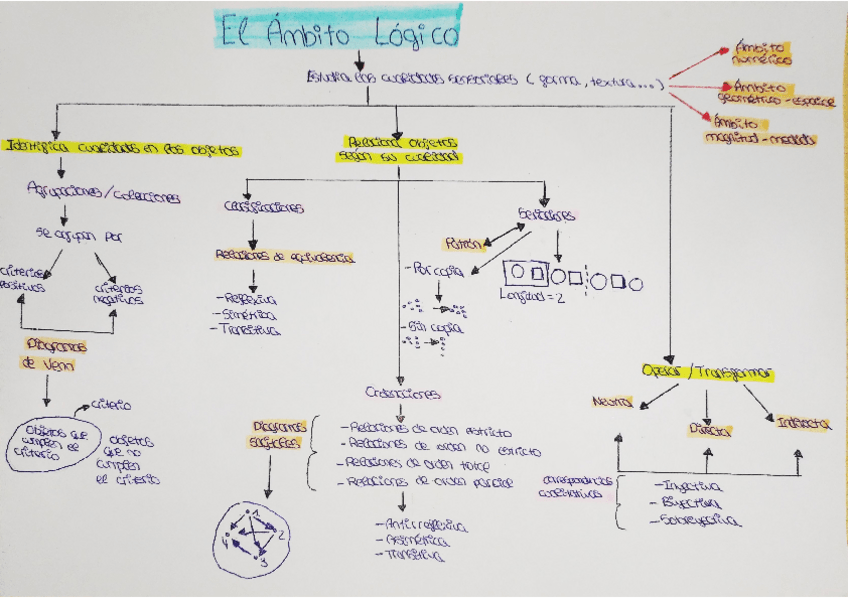 El Ámbito Lógico
Estudia las cualidades sensoriales (forma, textura...)
Ámbito
numérico
Ámbito
geométrico-espacial
Ámbito
magnitud-medida
Identifica cualidades en los objetos
Relacional objetos
según su cualidad
Agrupaciones/colecciones
Se agrupan por
criterios
positivos
criterios
negativos
Diagramas
de Venn
criterio
Objetos que
cumplen el
criterio
objetos
que no
cumplen
el criterio
Clasificaciones
Relaciones de equivalencia
-Reflexiva
-Simétrica
-Transitiva
Seriaciones
Patrón
-Por copia
-Sin copia
Longitud=2
Ordenaciones
Diagramas
sagitales
-Relaciones de orden estricto
-Relaciones de orden no estricto
-Relaciones de orden total
-Relaciones de orden parcial
-Antirreflexiva
-Asimétrica
-Transitiva
1
2
3
4
Operar/Transformar
Neutral
Directa
Indirecta
correspondencias
cualitativas
-Inyectiva
-Biyectiva
-Sobreyectiva